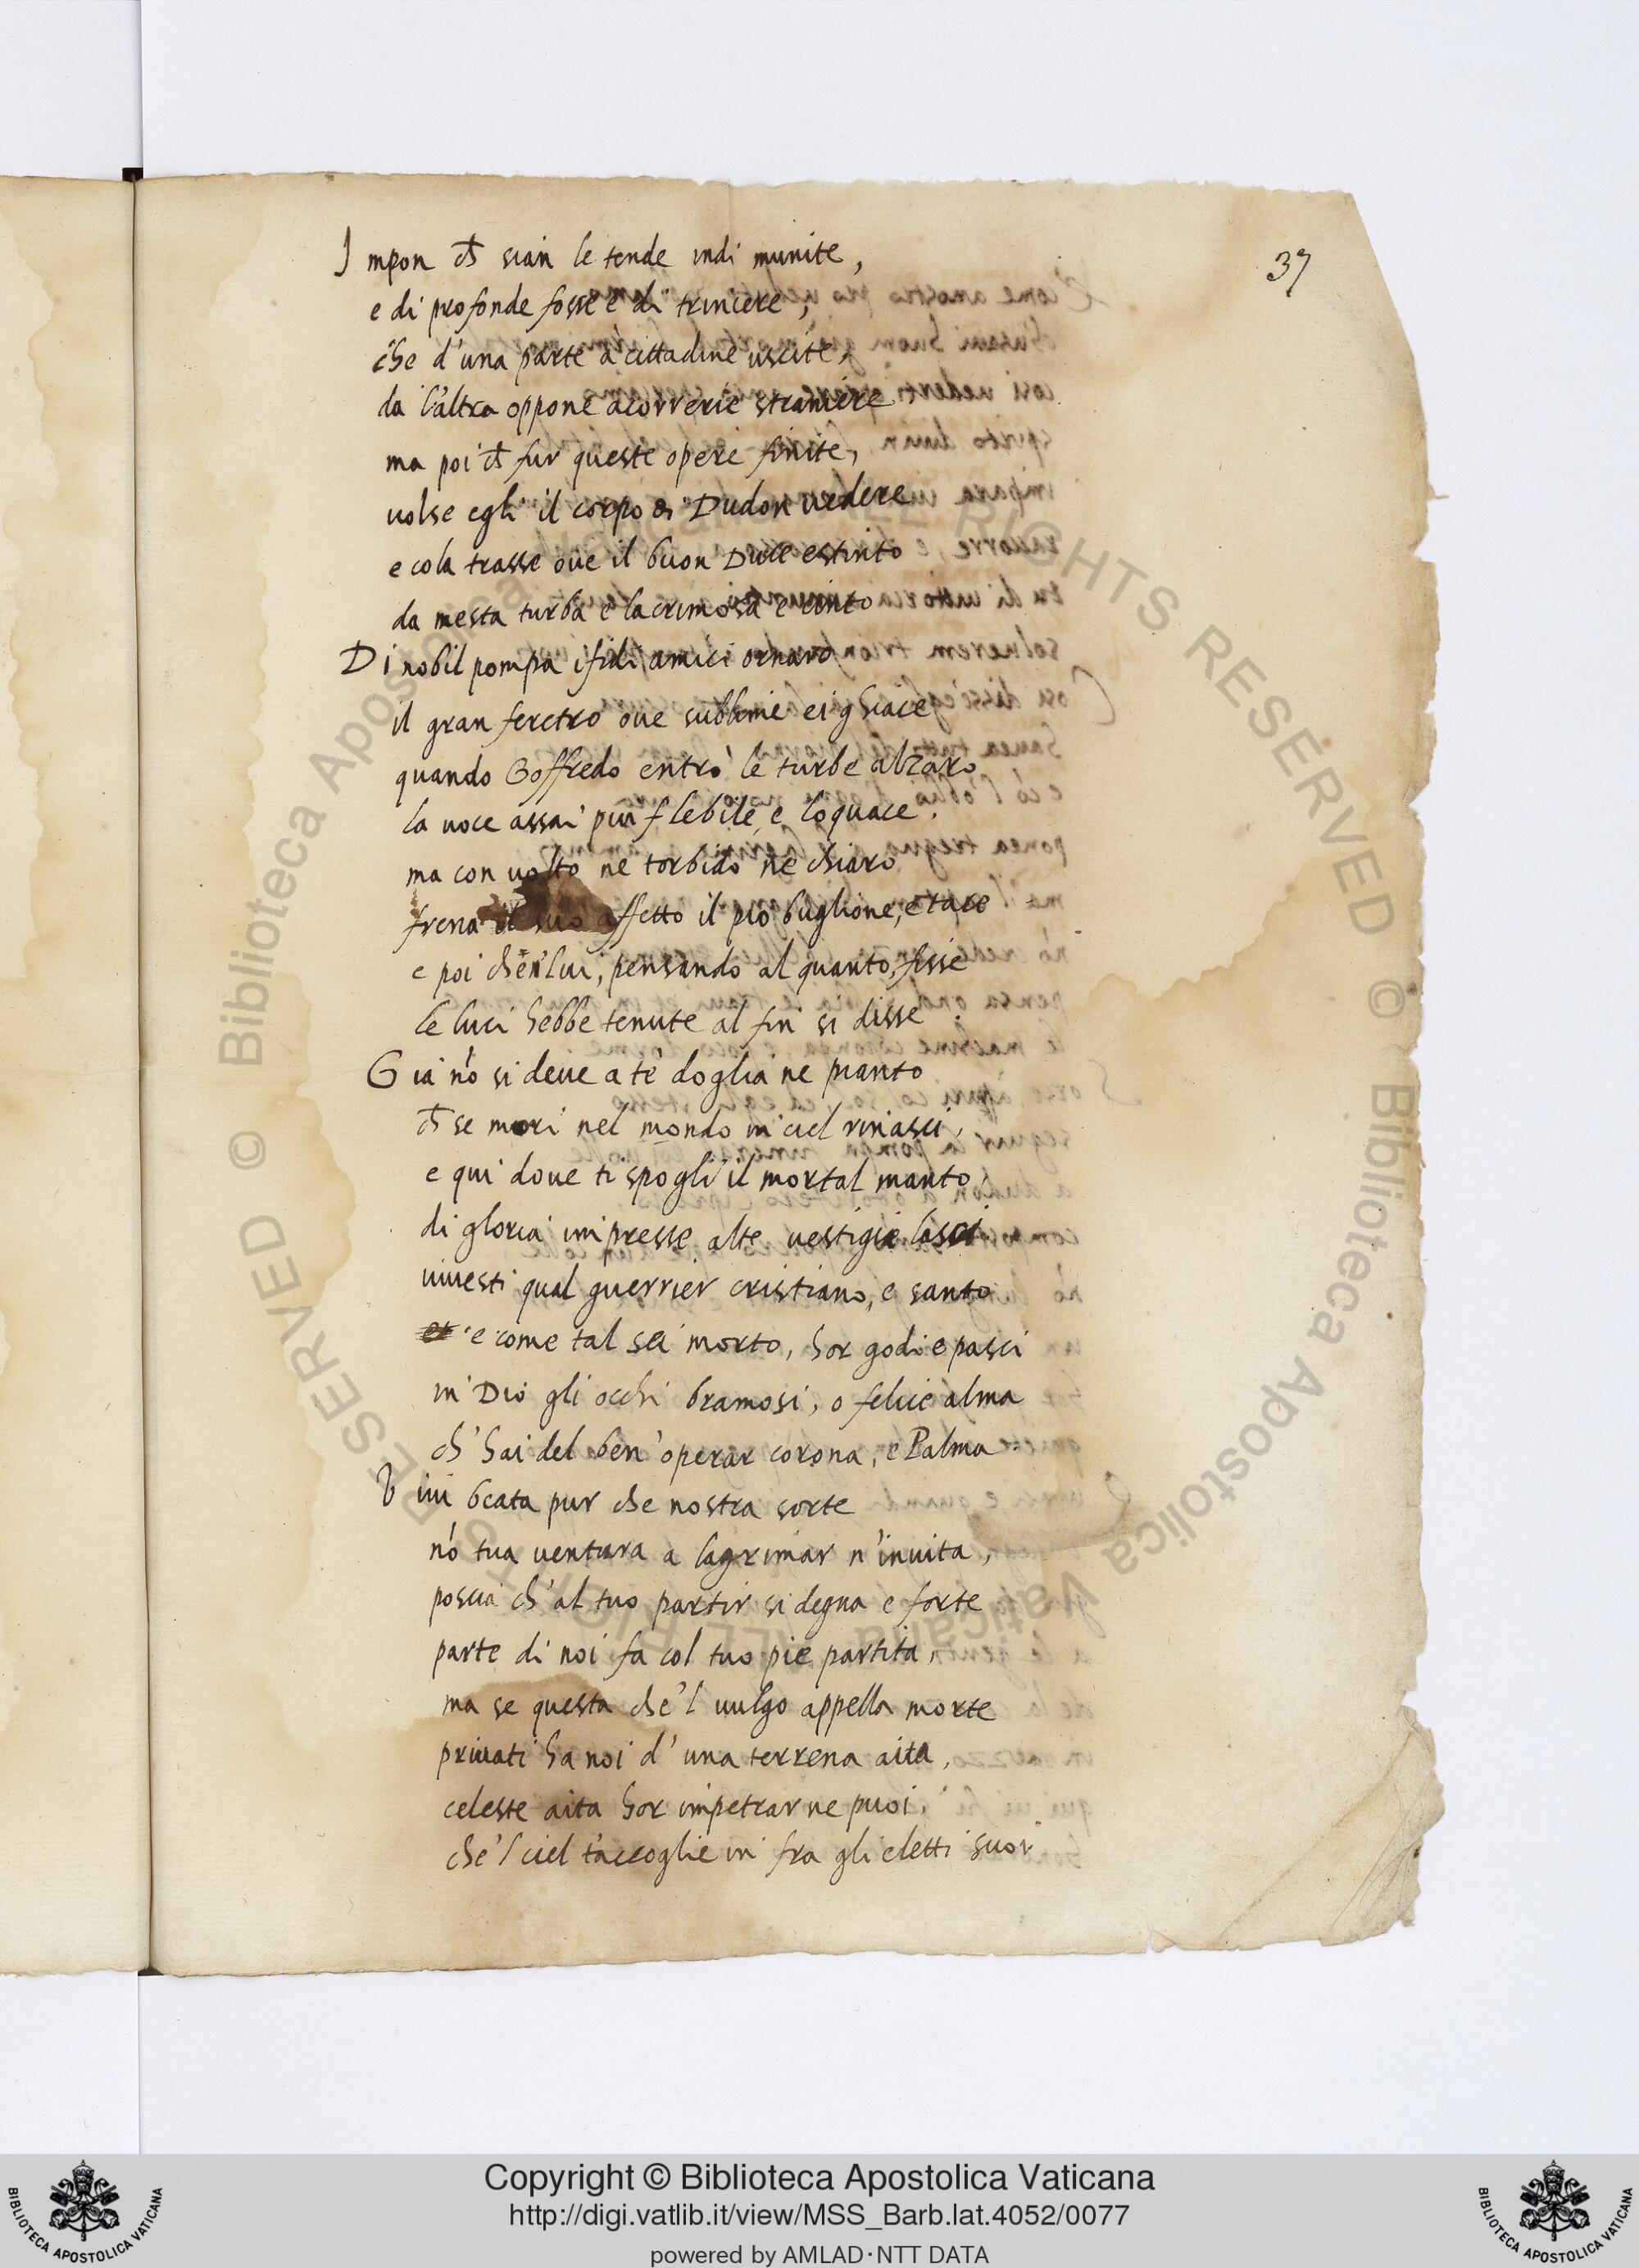 37
Impon ch̄ sian le tende indi munite,
e di profonde fosse e di trinciere,
che d'una parte a cittadine uscite,
da l'altra oppone a correrie straniere
ma poi ch̄ fur queste opere finite,
uolse egli il corpo di Dudon uedere
e cola trasse oue il buon Duce estinto
da mesta turba e lacrimosa e cinto
Di nobil pompa i fidi amici ornaro
il gran feretro oue sublime ei ghiace
quando Goffredo entrò le turbe alzaro
la uoce assai piu flebile, e loquace.
ma con uolto ne torbido ne chiaro
frena il suo affetto il pio buglione, e tace
e poi che'n lui, pensando al quanto, fisse
le luci hebbe tenute al fin si disse.
Gia nō si deue a te doglia ne pianto
ch̄ se mori nel mondo in ciel rinasci,
e qui doue ti spogli il mortal manto,
di gloria impresse alte uestigie lasci
uiuesti qual guerrier cristiano, e santo
e come tal sei morto, hor godi e pasci
in Dio gli occhi bramosi, o felice alma
ch'hai del ben'operar corona, e Palma.
Viui beata pur che nostra sorte
nō tua uentura a lagrimar n'inuita,
poscia ch'al tuo partir si degna e forte
parte di noi fa col tuo pie partita,
ma se questa che'l uulgo appella morte
priuati ha noi d'una terrena aita,
celeste aita hor impetrar ne puoi,
che'l ciel t'accoglie in fra gli eletti suoi
© Biblioteca Apostolica Vaticana ALL RIGHTS RESERVED
Copyright © Biblioteca Apostolica Vaticana
http://digi.vatlib.it/view/MSS_Barb.lat.4052/0077
powered by AMLAD·NTT DATA
BIBLIOTECA APOSTOLICA VATICANA
BIBLIOTECA APOSTOLICA VATICANA